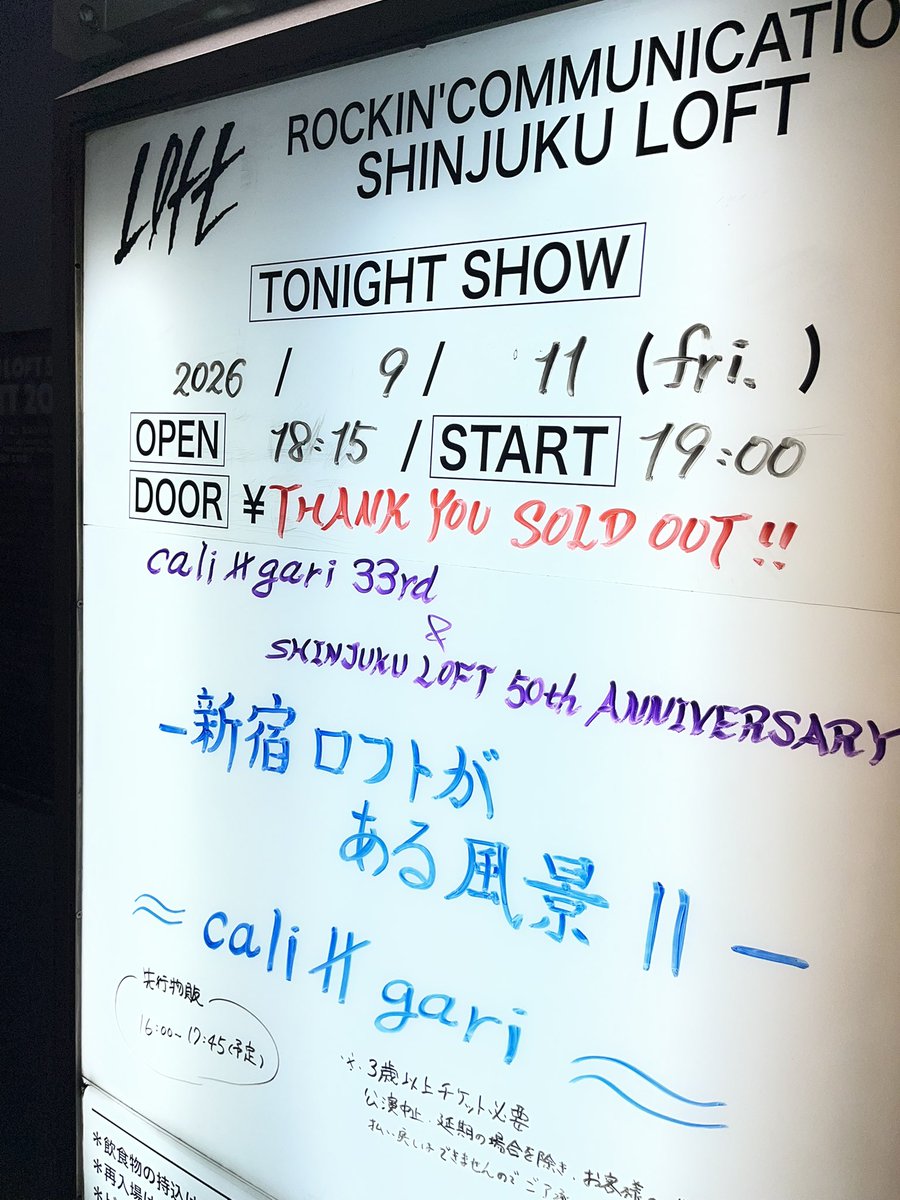 Loft
ROCKIN'COMMUNICATIO
SHINJUKU LOFT
TONIGHT SHOW
2026 / 9 / 11 (fri.)
OPEN 18:15 / START 19:00
DOOR ¥ THANK YOU SOLD OUT!!
cali≠gari 33rd
&
SHINJUKU LOFT 50th ANNIVERSARY
-新宿ロフトが
ある風景 11-
≈cali≠gari≈
先行物販
16:00~17:45(予定)
※3歳以上チケット必要
公演中止・延期の場合を除き、お客様
払い戻しはできませんのでご了承
*飲食物の持込は
*再入場は